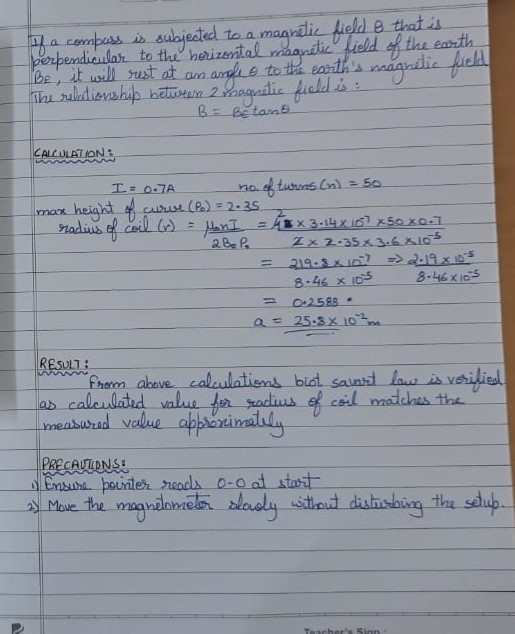 If a compass is subjected to a magnetic field B that is
perpendicular to the horizontal magnetic field of the earth
BE, it will rest at an angle θ to the earth's magnetic field
The relationship between 2 magnetic field is :
B = BE tanθ
CALCULATION :
I = 0.7A no. of turns (n) = 50
max height of curve (P0) = 2.35
radius of coil (r) = μ0nI / 2BeP0 = 2 × 3.14 × 10⁻⁷ × 50 × 0.7 / 2 × 2.35 × 3.6 × 10⁻⁵
= 219.8 × 10⁻⁷ / 8.46 × 10⁻⁵ => 2.19 × 10⁻⁵ / 8.46 × 10⁻⁵
= 0.2588
a = 25.8 × 10⁻² m
RESULT :
From above calculations biot savart law is verified
as calculated value for radius of coil matches the
measured value approximately
PRECAUTIONS :
1) Ensure pointer reads 0-0 at start
2) Move the magnetometer slowly without disturbing the setup.
Teacher's Sign :